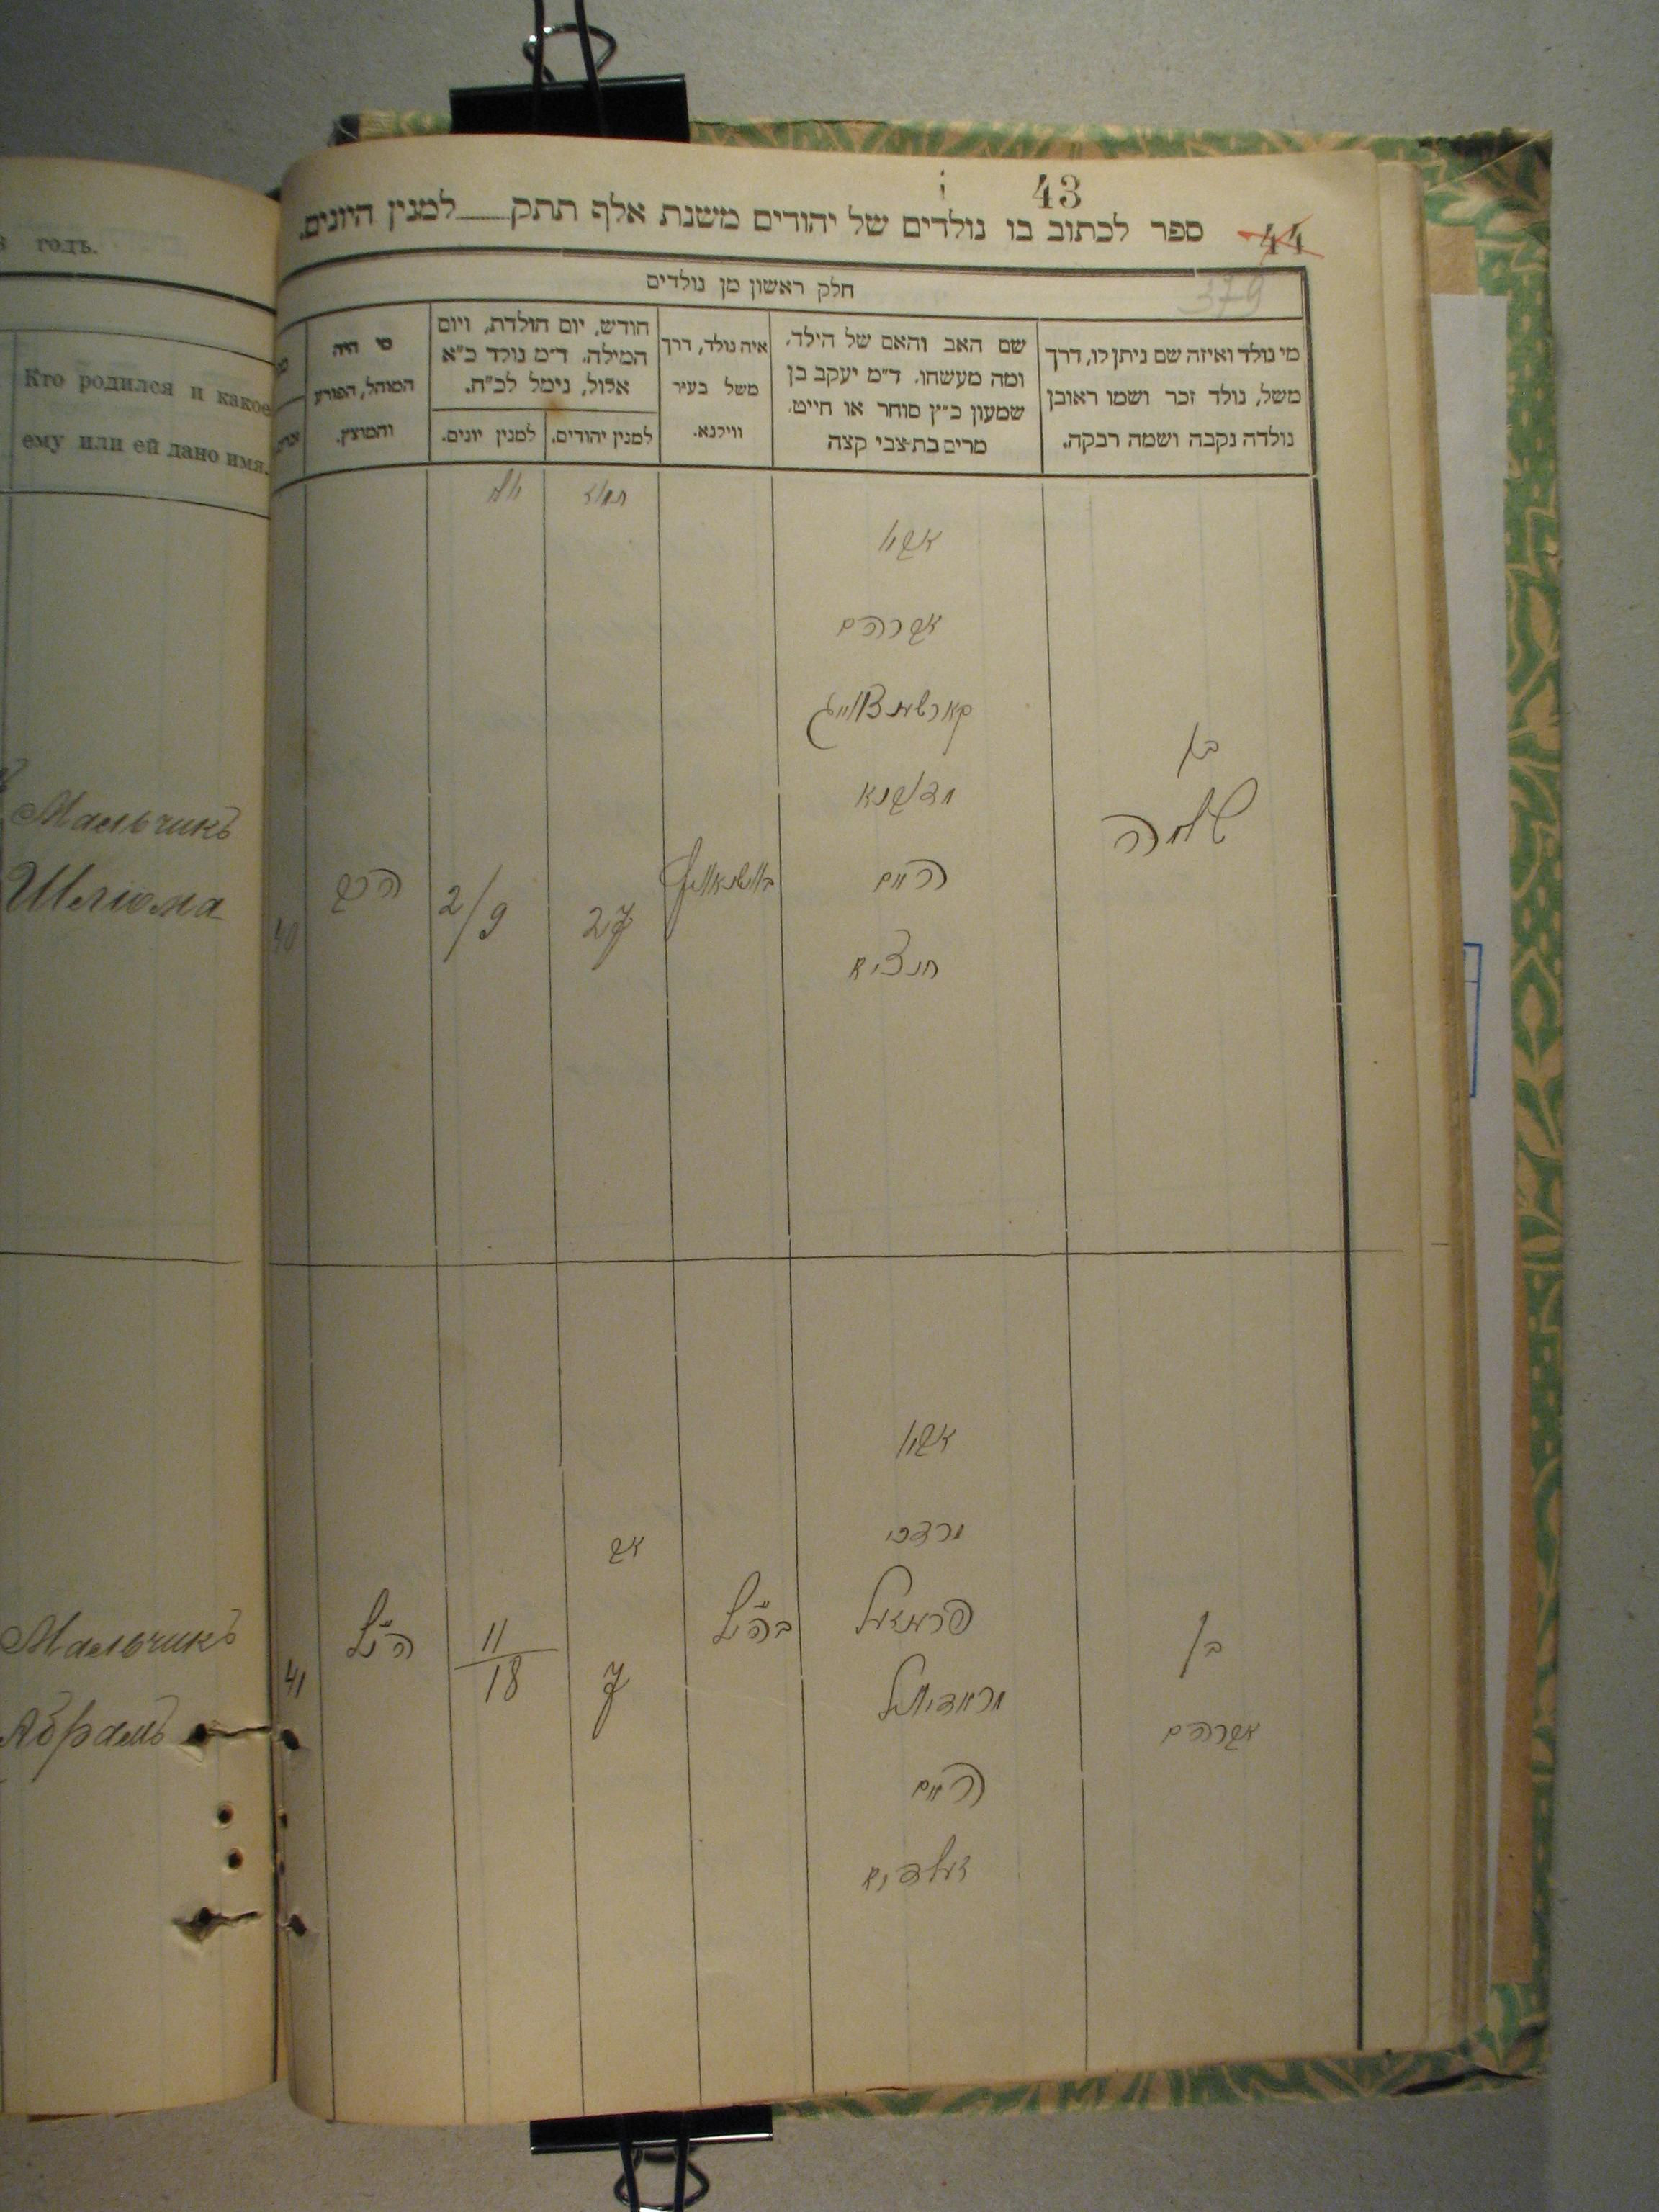 43
44
ספר לכתוב בו נולדים של יהודים משנת אלף תתק___למנין היונים.
379
חלק ראשון מן נולדים
מי נולד ואיזה שם ניתן לו, דרך
משל, נולד זכר ושמו ראובן
נולדה נקבה ושמה רבקה.
שם האב והאם של הילד,
ומה מעשהו. ד"מ יעקב בן
שמעון כ"ץ סוחר או חייט.
מרים בת־צבי קצה
איה נולד, דרך
משל בעיר
ווילנא.
חודש, יום הולדת, ויום
המילה. ד"מ נולד כ"א
אלול, נימל לכ"ח.
למנין יהודים.
למנין יונים.
מי היה
המוהל, הפורע
והמוצץ.
בן
שלמה
אביו
אברהם
האם
27
2/9
הרב
40
בן
אברהם
אביו
מרדכי
האם
בהנ"ל
אב
7
11/18
הנ"ל
41
годъ.
Кто родился и какое
ему или ей дано имя.
Мальчикъ
Шлюма
Мальчикъ
Абрамъ